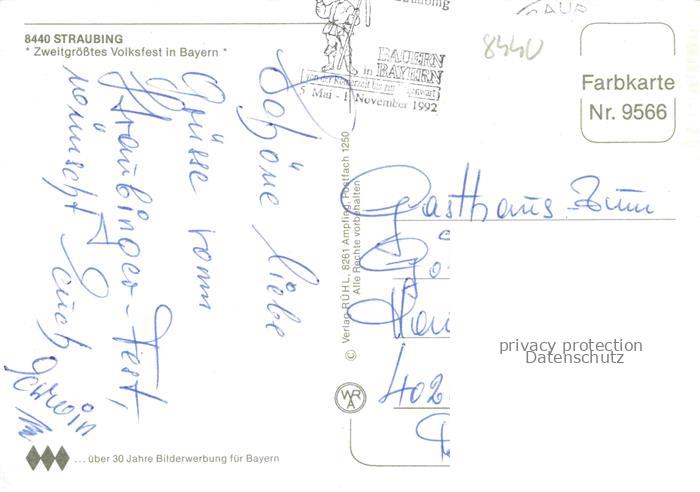 8440 STRAUBING
* Zweitgrößtes Volksfest in Bayern *
BAUERN
in BAYERN
von der Römerzeit bis zur Gegenwart
5. Mai - 1. November 1992
8440
Farbkarte
Nr. 9566
Schöne liebe
Grüsse vom
Straubinger-Fest,
wünscht Euch
© Verlag RÜHL, 8261 Ampfing, Postfach 1250
Alle Rechte vorbehalten
Gasthaus Zum
402
privacy protection
Datenschutz
WRA
... über 30 Jahre Bilderwerbung für Bayern